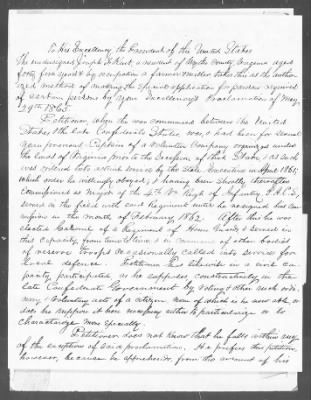 To his Excellency the President of the United States
The undersigned Joseph F. Kent, a resident of Wythe County Virginia aged
forty five years & by occupation a farmer & miller takes this as the author-
ized method of making the special application for pardon required
of certain persons by your Excellency's Proclamation of May
29th 1865.
Petitioner, when the war commenced between the United
States & the late Confederate States, was, & had been for several
years previous Captain of a Volunteer Company organized under
the laws of Virginia, prior to the Secession of that State, & as such
was ordered into actual service by the State Executive in April 1861,
which order he willingly obeyed, & having been shortly thereafter
Commissioned as Major of the 4th Va Regt of Infantry, P.A.C.S.,
served in the field with said Regiment until he resigned his Com-
mission in the month of February, 1862. After this he was
elected Colonel of a Regiment of Home Guards & served in
this capacity, from time to time, & in command of other bodies
of reserve troops occasionally called into service for
local defence. Petitioner did otherwise in a small ca-
pacity, participated, as he supposes, constructively, in the
late Confederate Government by voting & other such ordi-
nary & voluntary acts of a citizen, none of which is he now able, or
does he suppose it been necessary either to particularize or to
characterize more specially.
Petitioner does not know that he falls within any
of the exceptions of said proclamation. He prefers this petition,
however, because he apprehends, from the avowal of his